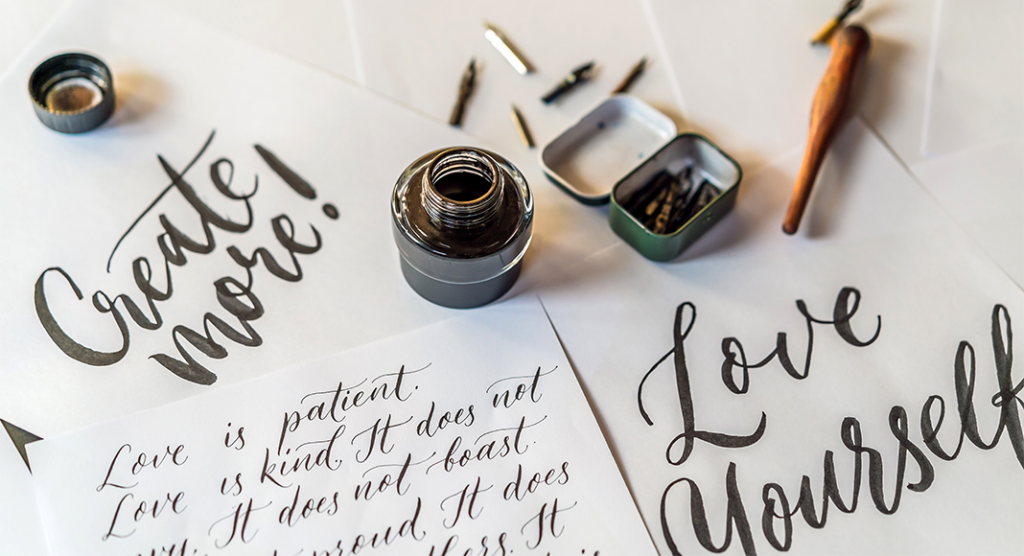 Create
more!
Love is patient.
Love is kind. It does not
It does not boast.
proud. It does
It
Love
Yourself